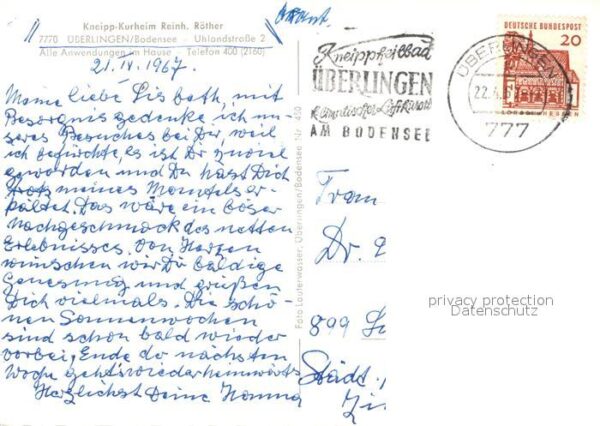 beant.
Kneipp-Kurheim Reinh. Röther
7770 ÜBERLINGEN/Bodensee - Uhlandstraße 2
Alle Anwendungen im Hause - Telefon 400 (2160)
21.IV.1967.
Meine liebe Lisbeth, mit
Besorgnis gedenke ich un-
seres Besuches bei Dir, weil
ich befürchte, es ist Dir zuviel
geworden und Du hast Dich
trotz meines Mantels er-
kältet. Das wäre ein böser
Nachgeschmack des netten
Erlebnisses. Von Herzen
wünschen wir Dir baldige
Genesung und grüßen
Dich vielmals. Die schö-
nen Sonnenwochen
sind schon bald wieder
vorbei, Ende der nächsten
Woche geht's wieder heimwärts
Herzlichst Deine Hanna
Foto Lauterwasser, Überlingen/Bodensee Nr. 450
Kneippheilbad
ÜBERLINGEN
Klimatischer Luftkurort
AM BODENSEE
ÜBERLINGEN
22.4.67
777
DEUTSCHE BUNDESPOST
20
LORSCH HESSEN
Frau
Dr.
899
Städt.
privacy protection
Datenschutz